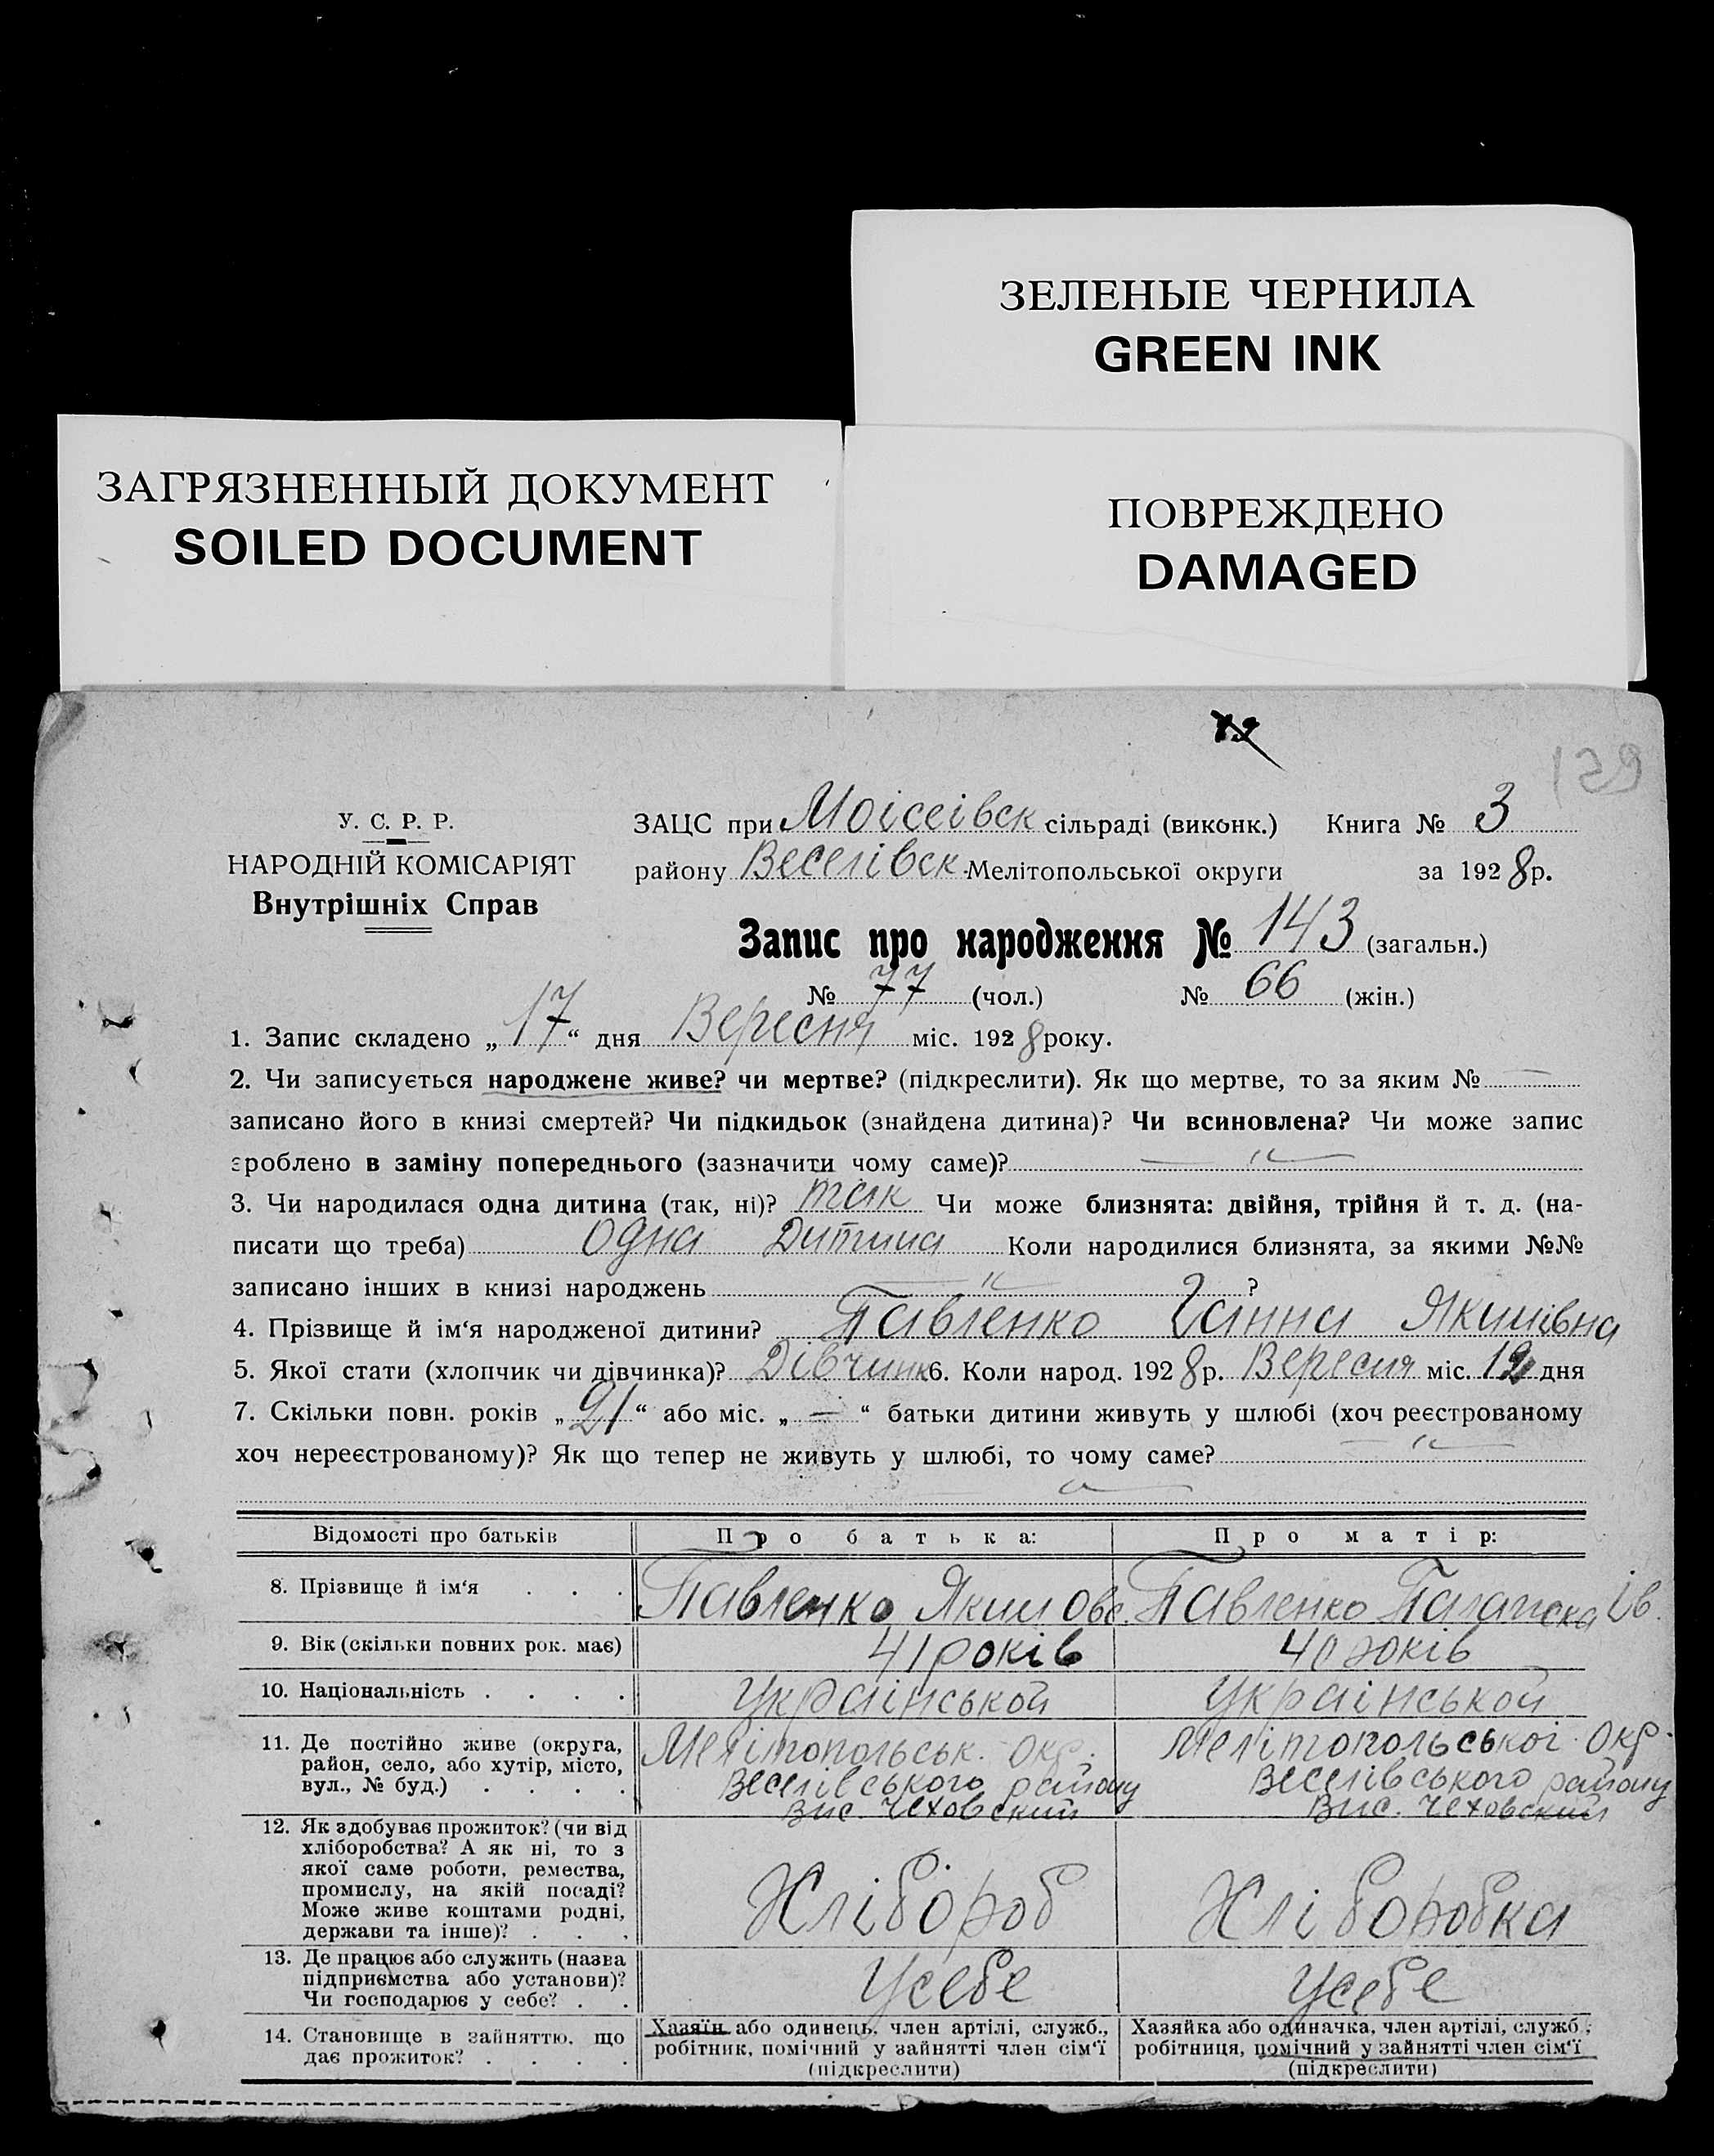 ЗЕЛЕНЫЕ ЧЕРНИЛА
GREEN INK
ЗАГРЯЗНЕННЫЙ ДОКУМЕНТ
SOILED DOCUMENT
ПОВРЕЖДЕНО
DAMAGED
139
У. С. Р. Р.
НАРОДНІЙ КОМІСАРІЯТ
Внутрішніх Справ
ЗАЦС при Моісеівск сільраді (виконк.) Книга № 3
району Веселівск. Мелітопольської округи за 1928 р.
Запис про народження № 143 (загальн.)
№ 77 (чол.) № 66 (жін.)
1. Запис складено „17“ дня Вересня міс. 1928 року.
2. Чи записується народжене живе? чи мертве? (підкреслити). Як що мертве, то за яким № —
записано його в книзі смертей? Чи підкидьок (знайдена дитина)? Чи всиновлена? Чи може запис
зроблено в заміну попереднього (зазначити чому саме)? — „ —
3. Чи народилася одна дитина (так, ні)? так Чи може близнята: двійня, трійня й т. д. (на-
писати що треба) Одна Дитина Коли народилися близнята, за якими №№
записано інших в книзі народжень — „ — ?
4. Прізвище й ім‘я народженої дитини? Павленко Ганна Якимівна
5. Якої стати (хлопчик чи дівчинка)? Дівчинк 6. Коли народ. 1928 р. Вересня міс. 12 дня
7. Скільки повн. років „21“ або міс. „—“ батьки дитини живуть у шлюбі (хоч реєстрованому
хоч нереєстрованому)? Як що тепер не живуть у шлюбі, то чому саме? — „ —
Відомості про батьків
Про батька:
Про матір:
8. Прізвище й ім‘я . . .
Павленко Яким Овс.
Павленко Палажка Ів.
9. Вік (скільки повних рок. має)
41 років
40 років
10. Національність . . . .
Українськой
Українськой
11. Де постійно живе (округа,
район, село, або хутір, місто,
вул., № буд.) . . . .
Мелітопольськ. Окр.
Веселівського району
Вис. Чеховский
Мелітопольської Окр.
Веселівського району
Вис. Чеховский
12. Як здобуває прожиток? (чи від
хліборобства? А як ні, то з
якої саме роботи, ремества,
промислу, на якій посаді?
Може живе коштами родні,
держави та інше)? . . .
Хлібороб
Хлібororобка
13. Де працює або служить (назва
підприємства або установи)?
Чи господарює у себе? . .
Усебе
Усебе
14. Становище в зайняттю, що
дає прожиток? . . . .
Хазяїн або одинець, член артілі, служб.,
робітник, помічний у зайнятті член сім‘ї
(підкреслити)
Хазяйка або одиначка, член артілі, служб.,
робітниця, помічний у зайнятті член сім‘ї
(підкреслити)